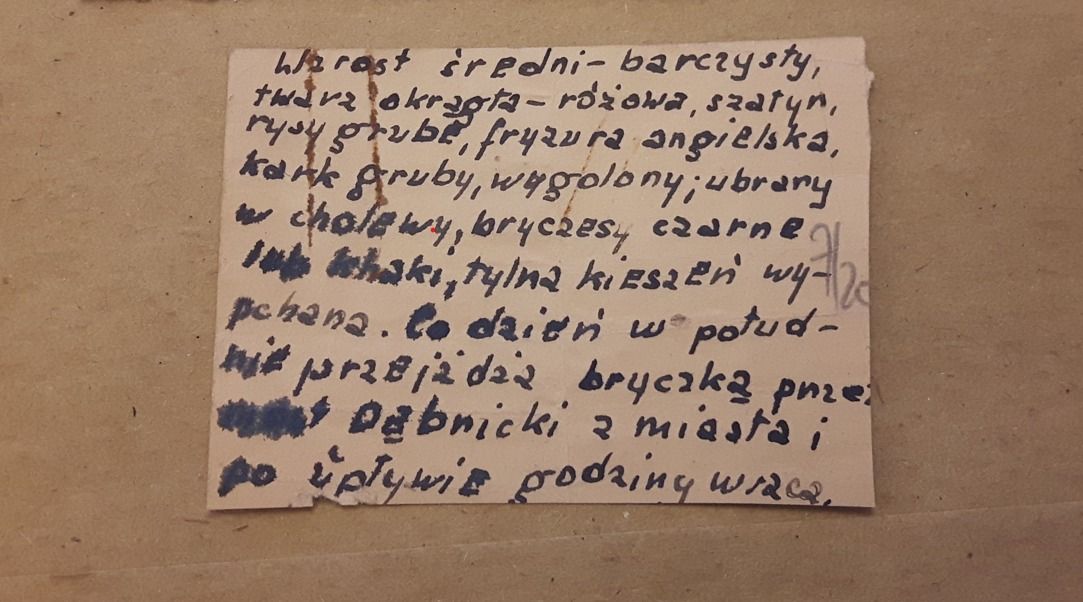 Wzrost średni - barczysty,
twarz okrągła - różowa, szatyn,
rysy grube, fryzura angielska,
kark gruby, wygolony; ubrany
w cholewy, bryczesy czarne
lub khaki, tylna kieszeń wy-
pchana. Co dzień w połud-
nie przejażdża bryczką przez
most Dębnicki z miasta i
po upływie godziny wraca.
7/20